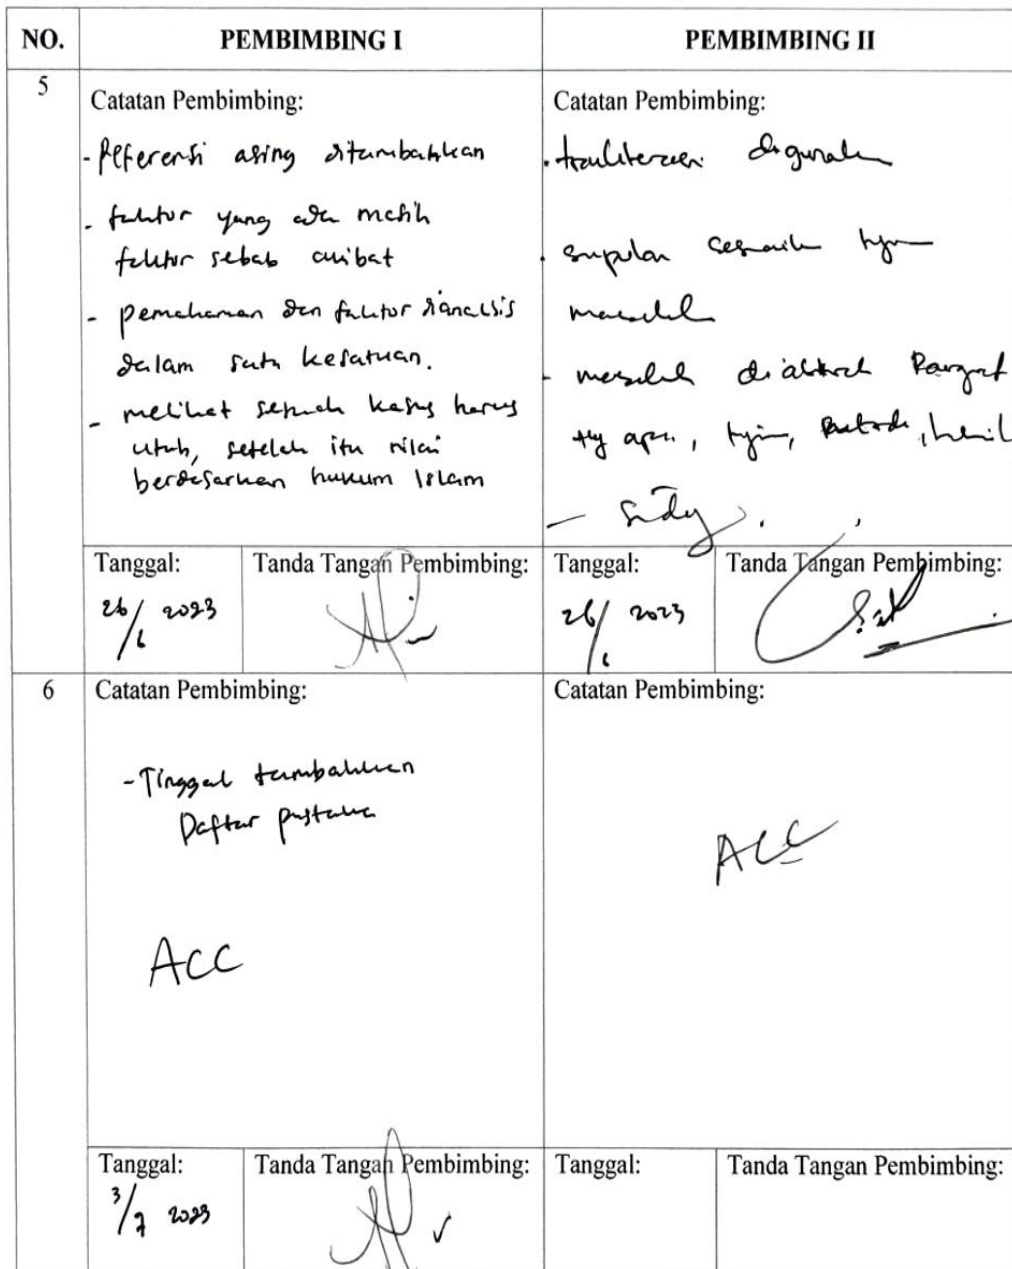 NO.
PEMBIMBING I
PEMBIMBING II
5
Catatan Pembimbing:
- Referensi asing ditambahkan
- faktor yang ada masih
faktor sebab akibat
- pemahaman dan faktor dianalisis
dalam satu kesatuan.
- melihat sebuah kasus harus
utuh, setelah itu nilai
berdasarkan hukum Islam
Catatan Pembimbing:
masalah
- masalah
apa, metode, hasil
Tanggal:
26/6 2023
Tanda Tangan Pembimbing:
Tanggal:
26/6 2023
Tanda Tangan Pembimbing:
6
Catatan Pembimbing:
- Tinggal tambahkan
Daftar pustaka
ACC
Catatan Pembimbing:
ACC
Tanggal:
3/7 2023
Tanda Tangan Pembimbing:
Tanggal:
Tanda Tangan Pembimbing: